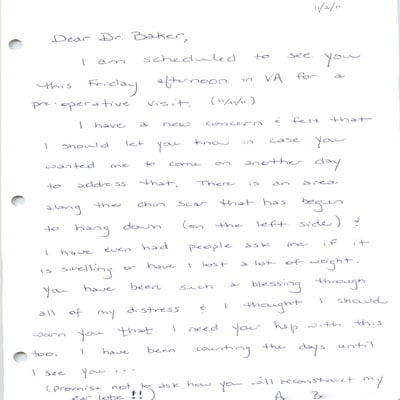 11/2/11
Dear Dr. Baker,
I am scheduled to see you
this Friday afternoon in VA for a
pre-operative visit. (11/11/11)
I have a new concern & felt that
I should let you know in case you
wanted me to come on another day
to address that. There is an area
along the chin scar that has begun
to hang down (on the left side) &
I have even had people ask me if it
is swelling or have I lost a lot of weight.
You have been such a blessing through
all of my distress & I thought I should
warn you that I need your help with this
too. I have been counting the days until
I see you...
(promise not to ask how you will reconstruct my
ear lobe!!)